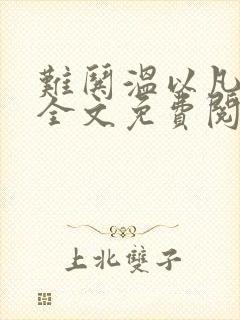 難關溫以凡
全文免費閱
上北雙子